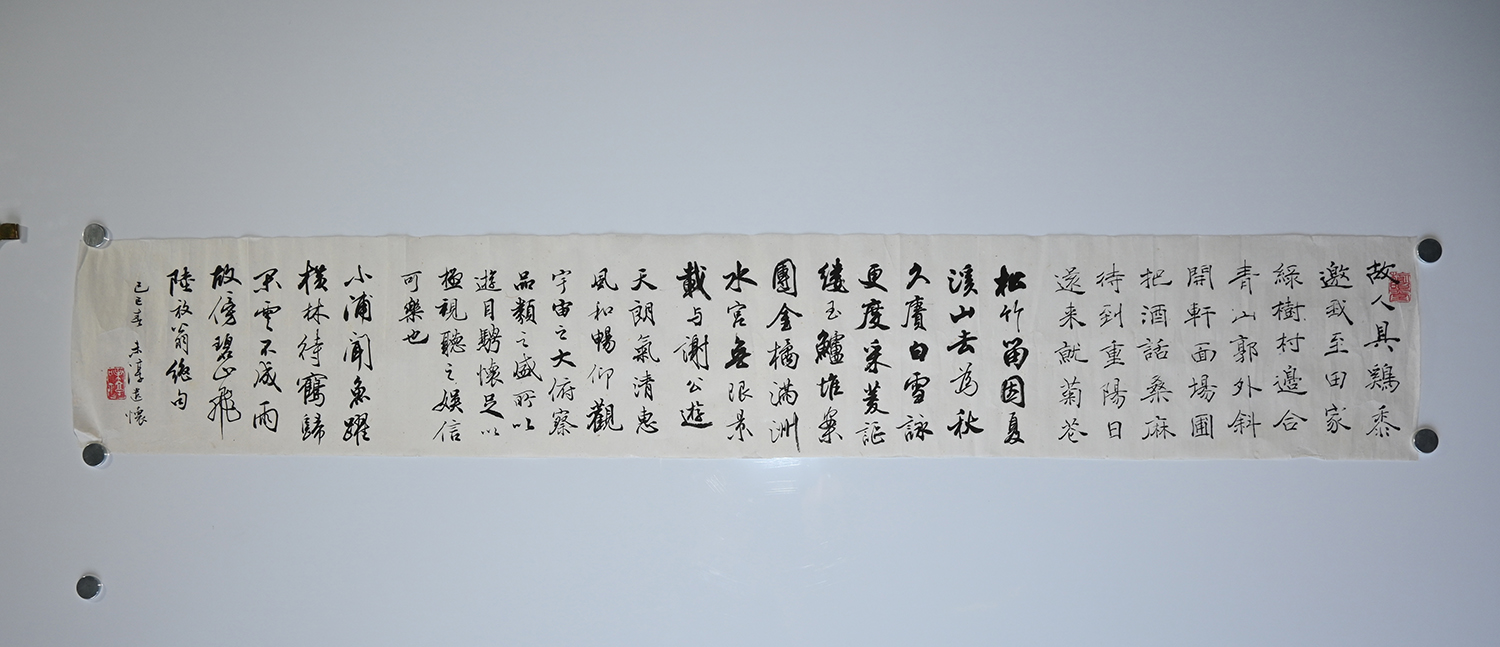 故人具鷄黍
邀我至田家
綠樹村邊合
青山郭外斜
開軒面場圃
把酒話桑麻
待到重陽日
還来就菊花
松竹留因夏
溪山去為秋
久賡白雪詠
更度采菱謳
縷玉鱸堆案
團金橘滿洲
水宮無限景
載与謝公遊
天朗氣清惠
風和暢仰觀
宇宙之大俯察
品類之盛所以
遊目騁懷足以
極視聽之娱信
可樂也
小浦聞魚躍
橫林待鶴歸
閑雲不成雨
故傍碧山飛
陸放翁絕句
己巳春 淳遣懷